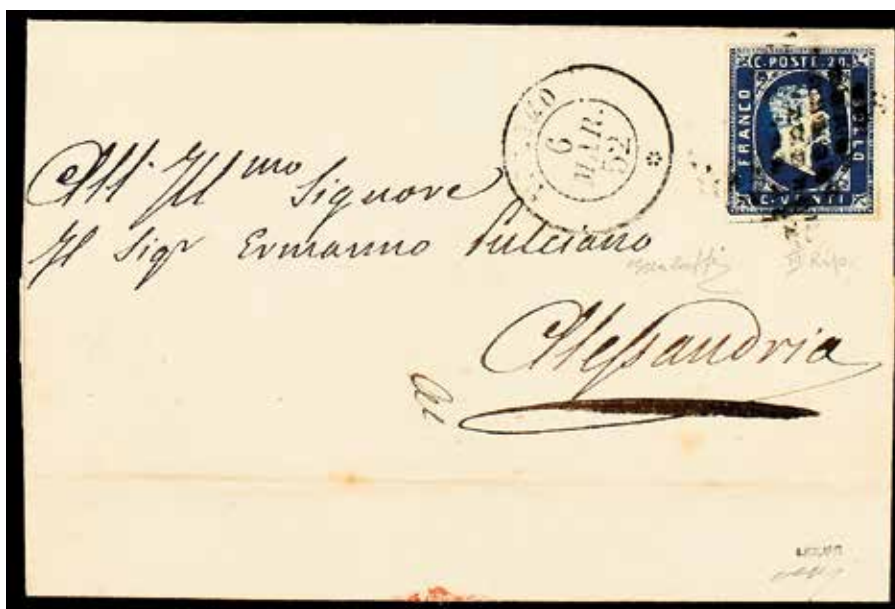 C. POSTE. 20
FRANCO
BOLLO
C. VENTI
6
MAR.
52
All' Ill mo Signore
Il Sigr Ermanno Pulciano
Alessandria